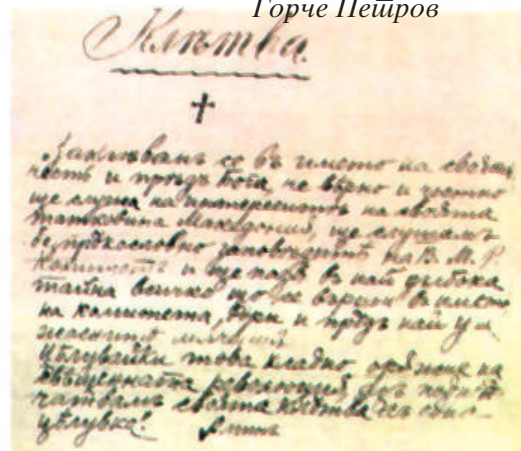 Горче Петров
Клѣтва.
Заклѣвамъ се въ името на своята
честь и прѣдъ Бога, че вѣрно и честно
ще служа на интереситѣ на своята
татковина Македония, ще слушамъ
безпрѣкословно заповѣдитѣ на В. М. Р.
Комитетъ и ще пазя въ най дълбока
тайна всичко що се върши въ името
на комитета, дори и прѣдъ най у-
жаснитѣ
Цѣлувайки това хладно орѫжие на
революция, азъ подпѣ-
чатвамъ своята клѣтва съ една
цѣлувка! Аминъ